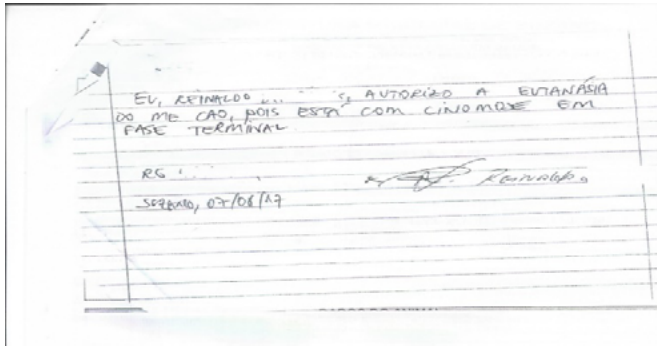 EU, REINALDO ... S, AUTORIZO A EUTANÁSIA
DO ME CAO, POIS ESTÁ COM CINOMOSE EM
FASE TERMINAL
RG
07/08/17
Reinaldo